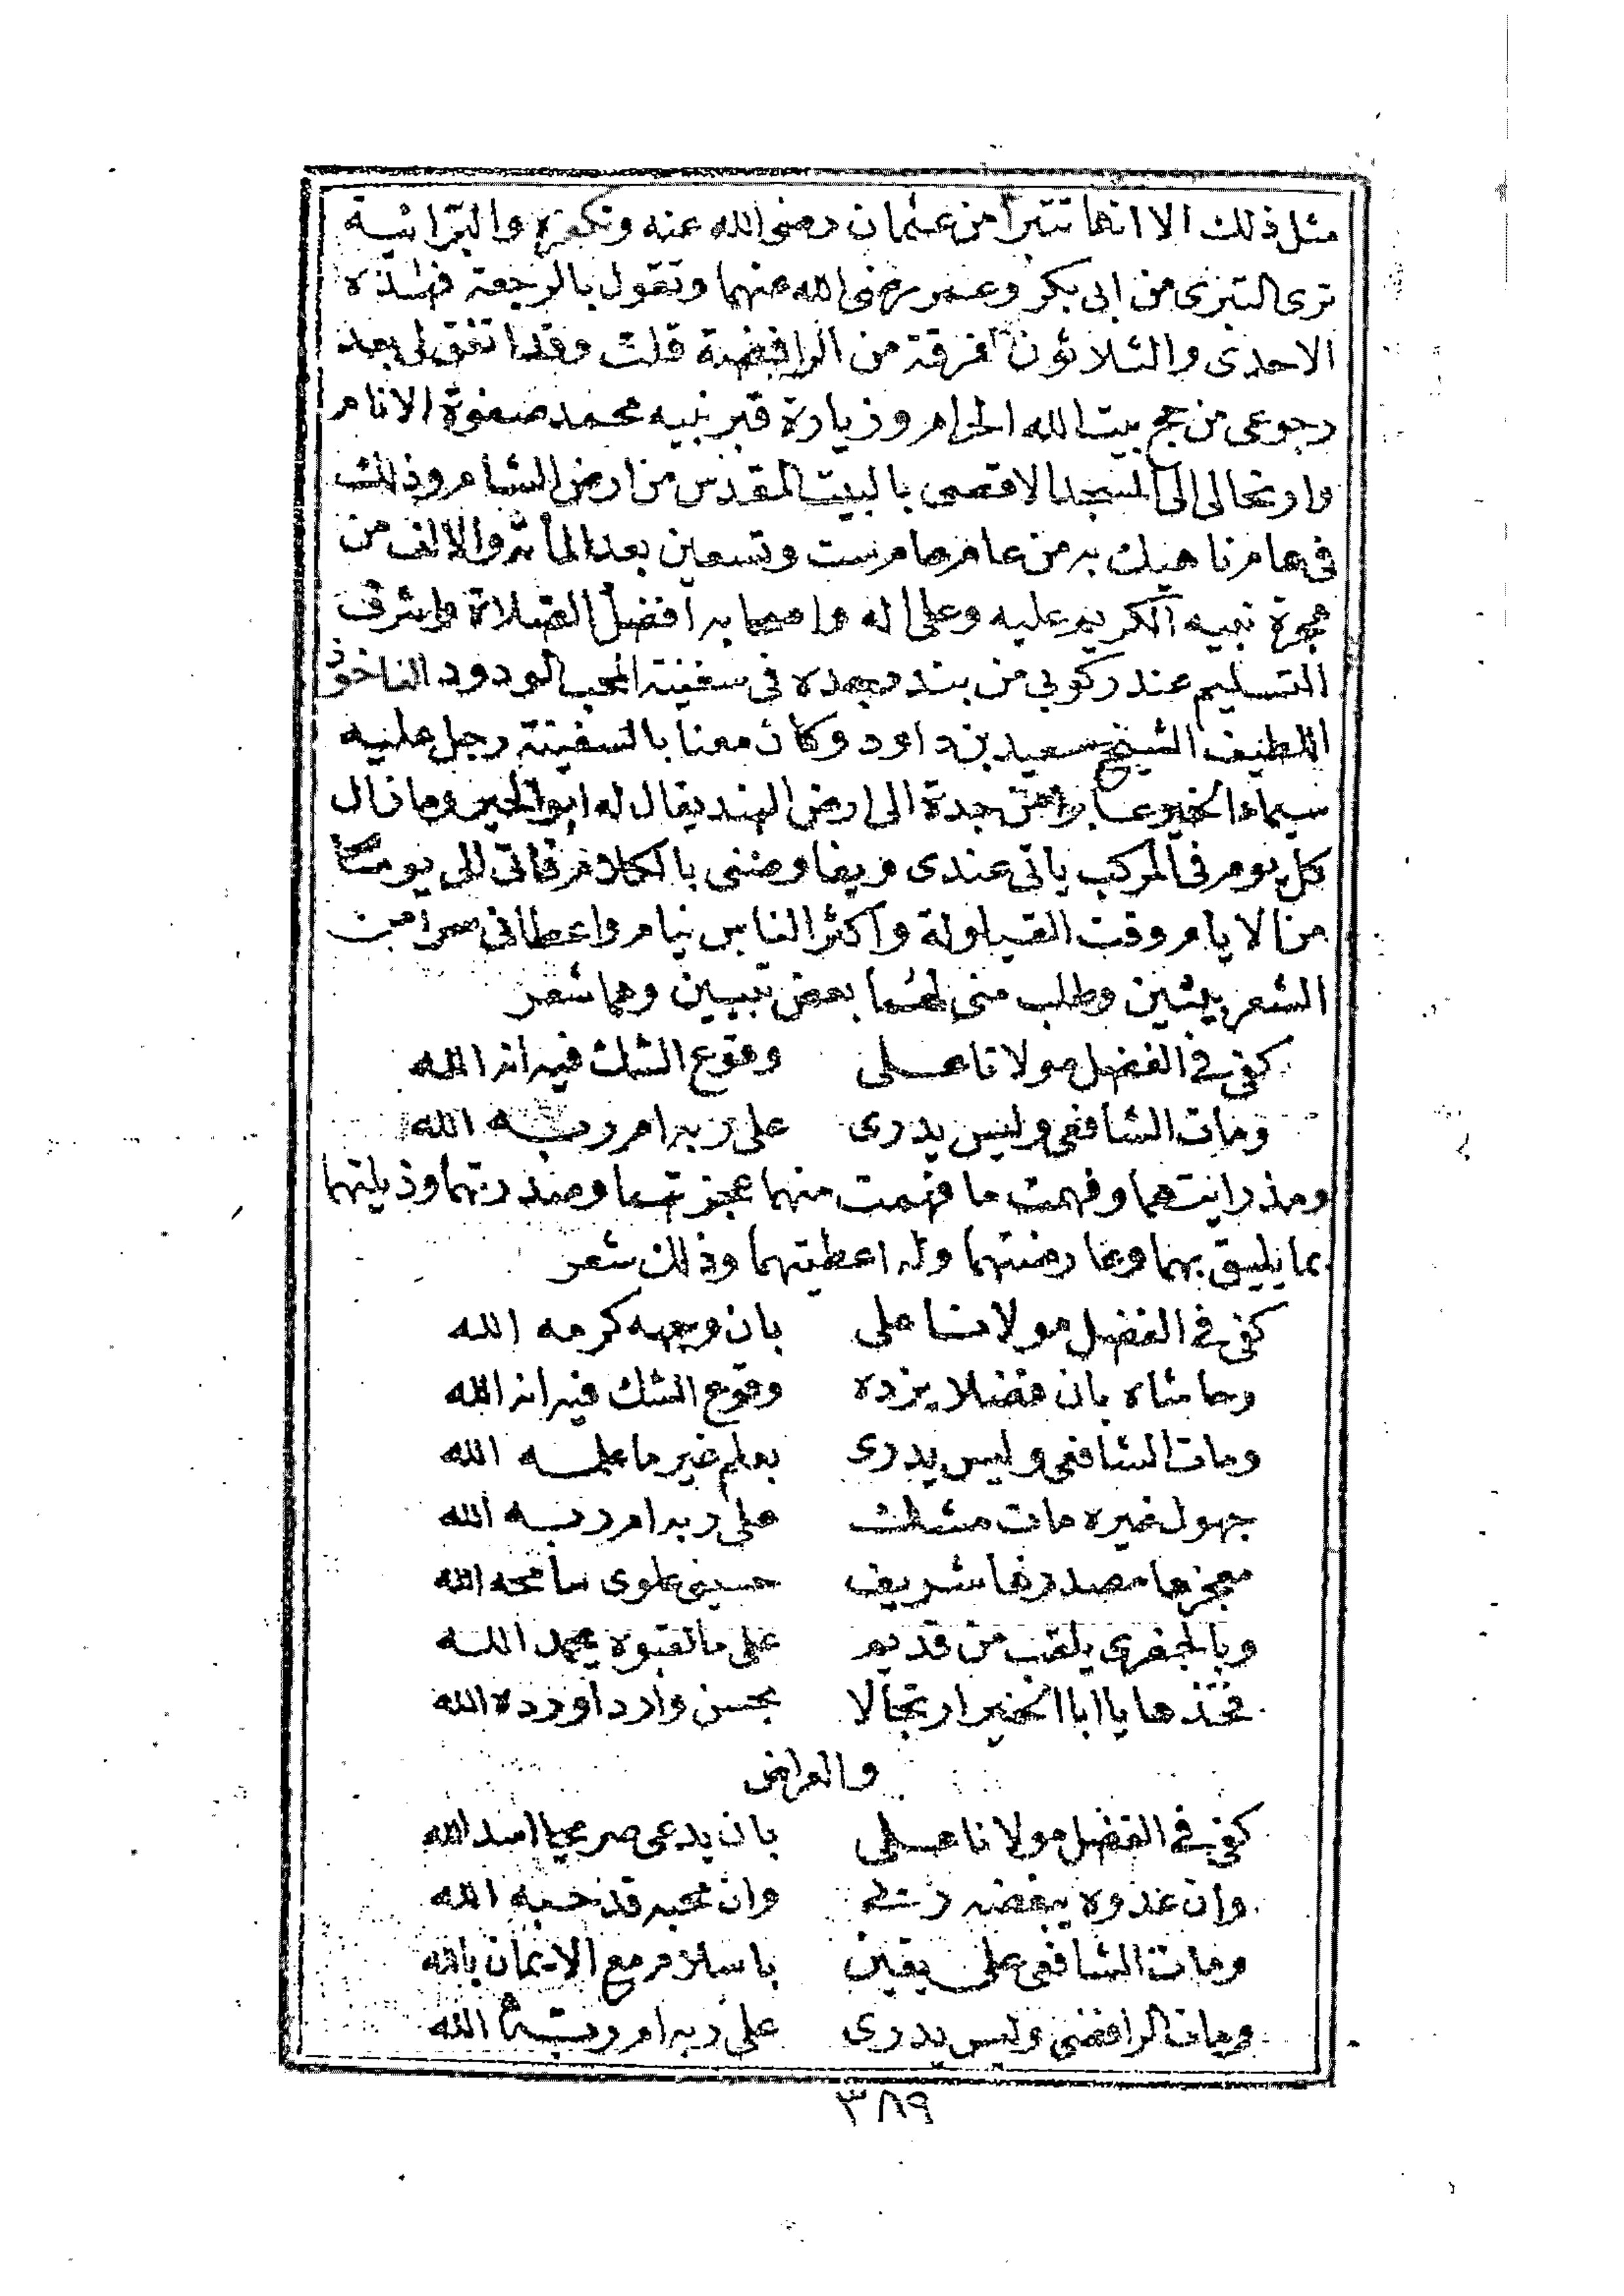 مثل ذلك الا انها تتبرأ من عثمان رضى الله عنه وتكفره والتبرائية
ترى التبرى من ابى بكر وعمر رضى الله عنهما وتقول بالرجعة فهذه
الاحدى والثلاثون فرقة من الرافضة قلت وقد اتفق لى بعد
رجوعى من حج بيت الله الحرام وزيارة قبر نبيه محمد صفوة الانام
وارتحالى الى المسجد الاقصى بالبيت المقدس من ارض الشام وذلك
فى عام ناهيك به من عام عام ست وتسعين بعد المائة والالف من
هجرة نبيه الكريم عليه وعلى اله واصحابه افضل الصلاة واشرف
التسليم عند ركوبى من بندر جده فى سفينة المحب الودود الناخوذ
اللطيف الشيخ سعيد بن داود وكان معنا بالسفينة رجل عليه
سيماء الخير عابرا من جدة الى ارض الهند يقال له ابو الخير وما زال
كل يوم فى المركب ياتى عندى ويفاوضنى بالكلام فاتى الى يوما
من الايام وقت القيلولة واكثر الناس نيام واعطانى من
الشعر بيتين وطلب منى لهما بعض تبيين وهما شعر
كفى فى الفضل مولانا على وقوع الشك فيه انه الله
ومات الشافعى وليس يدرى على ربه ام ربه الله
ومذ رايتهما وفهمت ما فهمت منهما عجزتهما وصدرتهما وذيلتهما
بما يليق بهما وعارضتهما وله اعطيتهما وذلك شعر
كفى فى الفضل مولانا على بان وجهه كرمه الله
وحاشاه بان فضلا يزده وقوع الشك فيه انه الله
ومات الشافعى وليس يدرى بعلم غير ما علمه الله
جهول غيره مات مشكك على ربه ام ربه الله
معجزها مصدرها شريف حسينى علوى سامحه الله
وبالجفرى يلقب من قديم على ما لقبوه بحمد الله
فخذها يا ابا الخير ارتجالا بحسن وارد اورده الله
والعراض
كفى فى الفضل مولانا على بان يدعى صريحا اسد الله
وان عدوه يبغضه وان محبه قد حبه الله
ومات الشافعى على يقين باسلام مع الايمان بالله
ومات الرافضى وليس يدرى على ربه ام ربه الله
٣٨٩